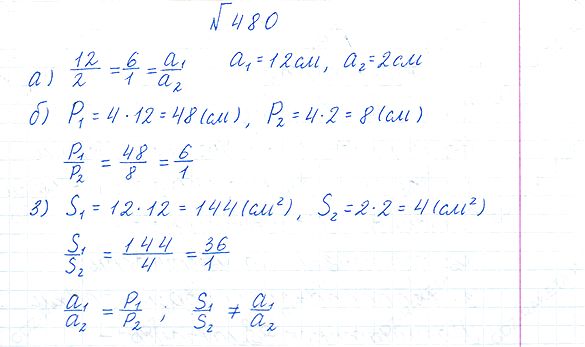 №480
а) 12/2 = 6/1 = a₁/a₂  a₁ = 12 см, a₂ = 2 см
б) P₁ = 4 · 12 = 48 (см), P₂ = 4 · 2 = 8 (см)
P₁/P₂ = 48/8 = 6/1
з) S₁ = 12 · 12 = 144 (см²), S₂ = 2 · 2 = 4 (см²)
S₁/S₂ = 144/4 = 36/1
a₁/a₂ = P₁/P₂ ; S₁/S₂ ≠ a₁/a₂